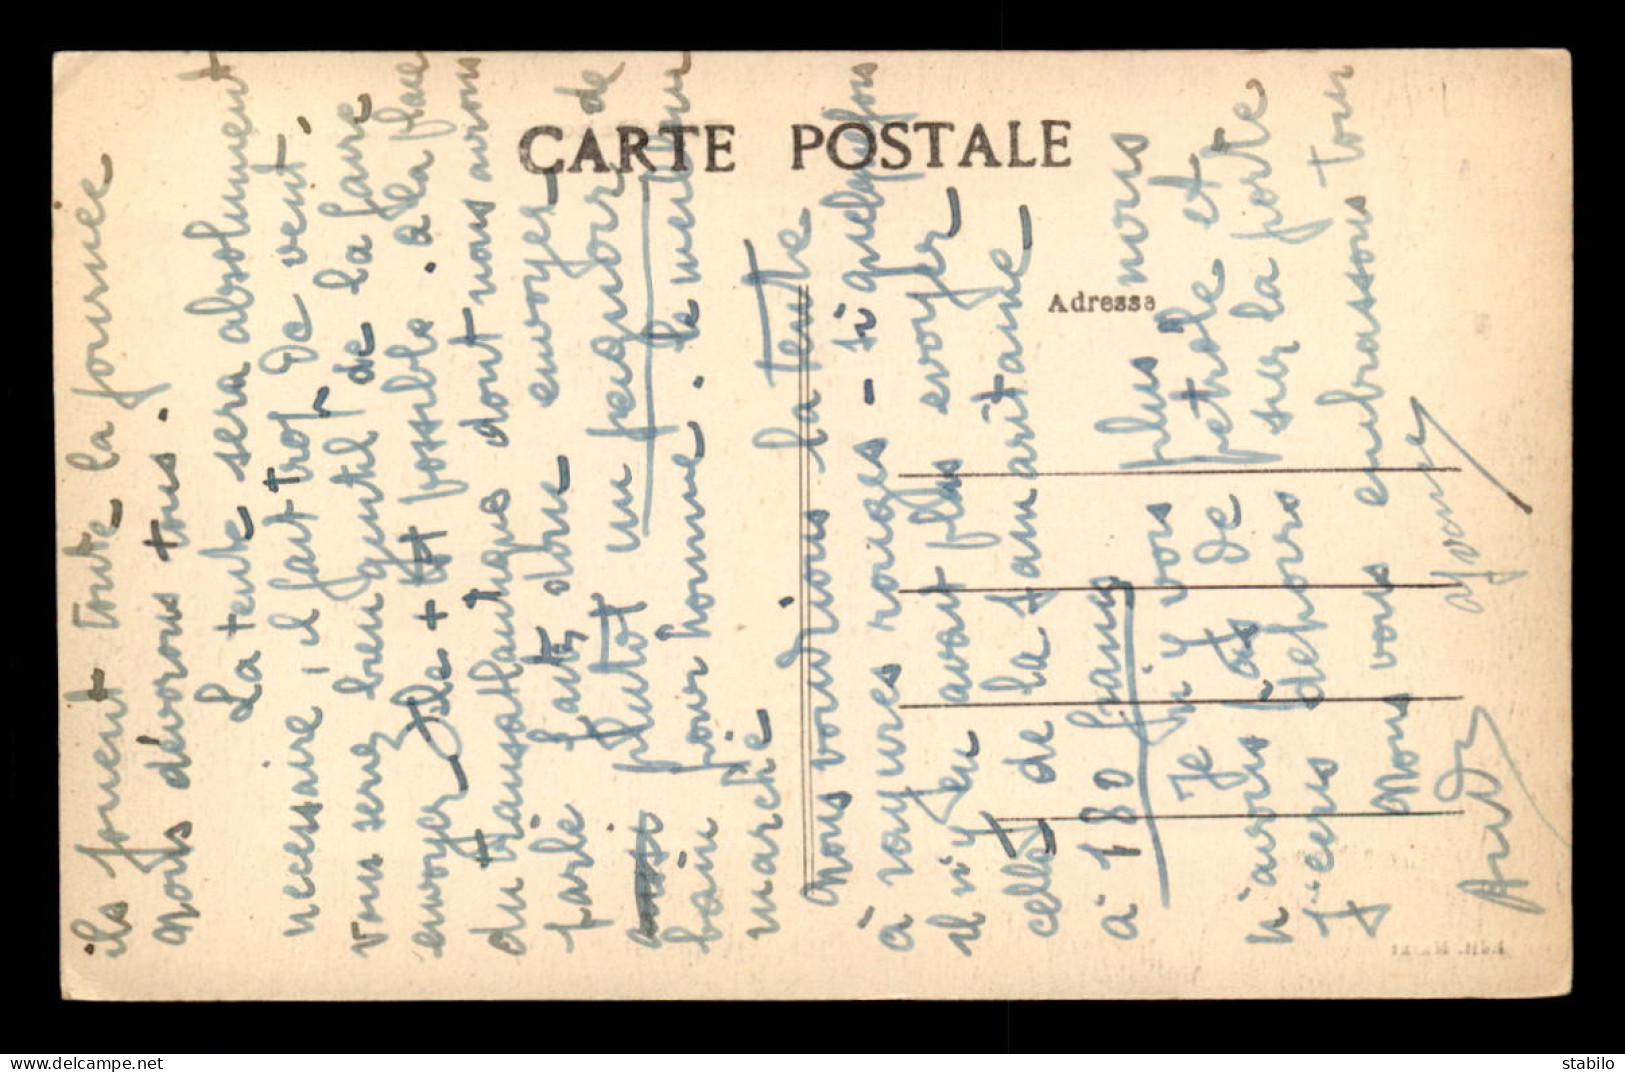 CARTE POSTALE
Adresse
ils jouent toute la journée
nous dévorons tous.
La tente sera absolument
necessaire, il fait trop de vent,
vous serez bien gentil de la faire
envoyer le + tôt possible. à la place
du transatlantique dont nous avons
parlé faites donc envoyer
plutot un peignoir de
bain pour homme. le meilleur
marché.
Nous voudrions la tente
à rayures rouges - si quelquefois
il n'y en avait plus evoyer
celle de la samaritaine
à 180 francs
Je n'y vois plus nous
n'avons pas de petrole et
j'ecris dehors sur la porte
Nous vous embrassons tous
André
Edit. M
stabilo